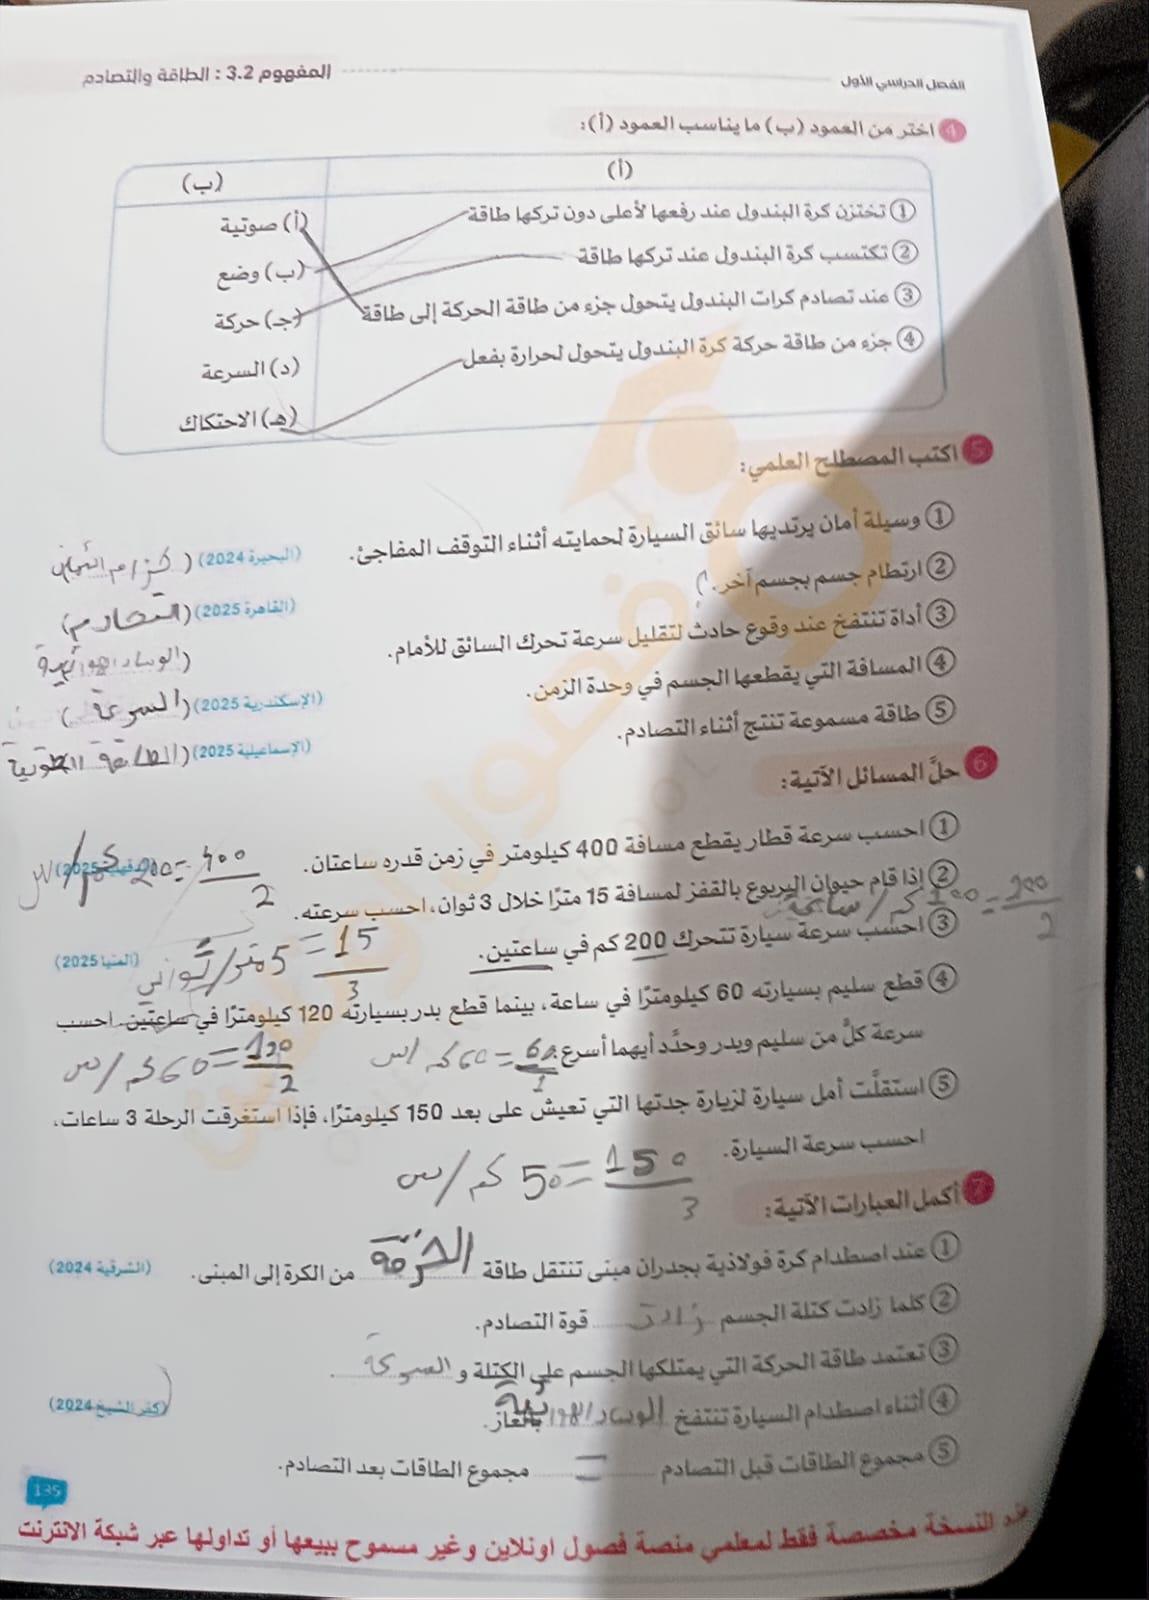 الفصل الدراسي الأول
المفهوم 3.2 : الطاقة والتصادم
4 اختر من العمود (ب) ما يناسب العمود (أ):
(أ) (ب)
① تختزن كرة البندول عند رفعها لأعلى دون تركها طاقة (أ) صوتية
② تكتسب كرة البندول عند تركها طاقة (ب) وضع
③ عند تصادم كرات البندول يتحول جزء من طاقة الحركة إلى طاقة (جـ) حركة
④ جزء من طاقة حركة كرة البندول يتحول لحرارة بفعل (د) السرعة
(هـ) الاحتكاك
5 اكتب المصطلح العلمي:
① وسيلة أمان يرتديها سائق السيارة لحمايته أثناء التوقف المفاجئ. (البحيرة 2024) (حزام الأمان
② ارتطام جسم بجسم آخر. (القاهرة 2025) (التصادم)
③ أداة تنتفخ عند وقوع حادث لتقليل سرعة تحرك السائق للأمام. (الوساد الهوائية
④ المسافة التي يقطعها الجسم في وحدة الزمن. (الإسكندرية 2025) (السرعة)
⑤ طاقة مسموعة تنتج أثناء التصادم. (الإسماعيلية 2025) (الطاقة الصوتية
6 حلَّ المسائل الآتية:
① احسب سرعة قطار يقطع مسافة 400 كيلومتر في زمن قدره ساعتان. (الدقهلية 2025)
400/2 = 200 كم/س
② إذا قام حيوان اليربوع بالقفز لمسافة 15 مترًا خلال 3 ثوان، احسب سرعته.
200/2 = 100 كم/ساعة
③ احسب سرعة سيارة تتحرك 200 كم في ساعتين. (المنيا 2025)
15/3 = 5 متر/ثواني
④ قطع سليم بسيارته 60 كيلومترًا في ساعة، بينما قطع بدر بسيارته 120 كيلومترًا في ساعتين. احسب
سرعة كلٍّ من سليم وبدر وحدَّد أيهما أسرع.
60/1 = 60 كم/س
120/2 = 60 كم/س
⑤ استقلَّت أمل سيارة لزيارة جدتها التي تعيش على بعد 150 كيلومترًا، فإذا استغرقت الرحلة 3 ساعات،
احسب سرعة السيارة.
150/3 = 50 كم/س
7 أكمل العبارات الآتية:
① عند اصطدام كرة فولاذية بجدران مبنى تنتقل طاقة الحركة من الكرة إلى المبنى. (الشرقية 2024)
② كلما زادت كتلة الجسم زادت قوة التصادم.
③ تعتمد طاقة الحركة التي يمتلكها الجسم على الكتلة و السرعة.
④ أثناء اصطدام السيارة تنتفخ الوساد الهوائية بالغاز. (كفر الشيخ 2024)
⑤ مجموع الطاقات قبل التصادم = مجموع الطاقات بعد التصادم.
135
النسخة مخصصة فقط لمعلمي منصة فصول اونلاين وغير مسموح ببيعها أو تداولها عبر شبكة الانترنت